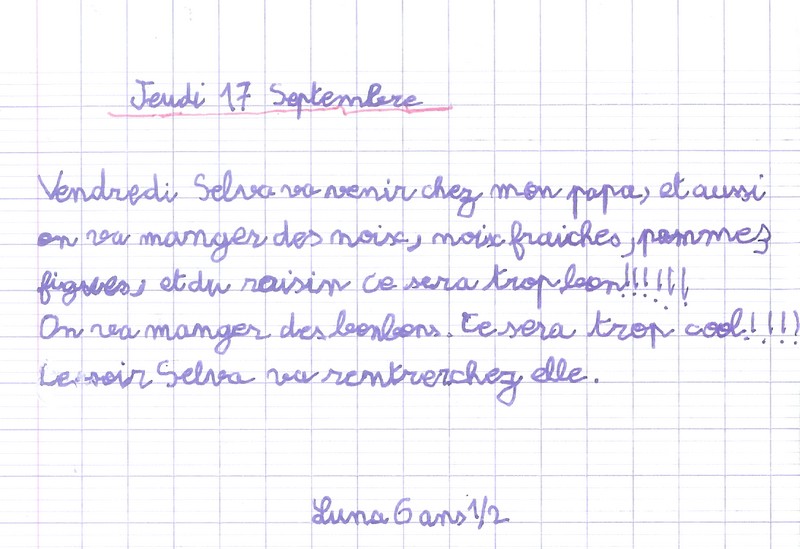 Jeudi 17 Septembre
Vendredi Selva va venir chez mon papa, et aussi
on va manger des noix, noix fraiches, pommes,
figues, et du raisin ce sera trop bon!!!!!!
On va manger des bonbons. Ce sera trop cool!!!!
Le soir Selva va rentrer chez elle.
Luna 6 ans 1/2